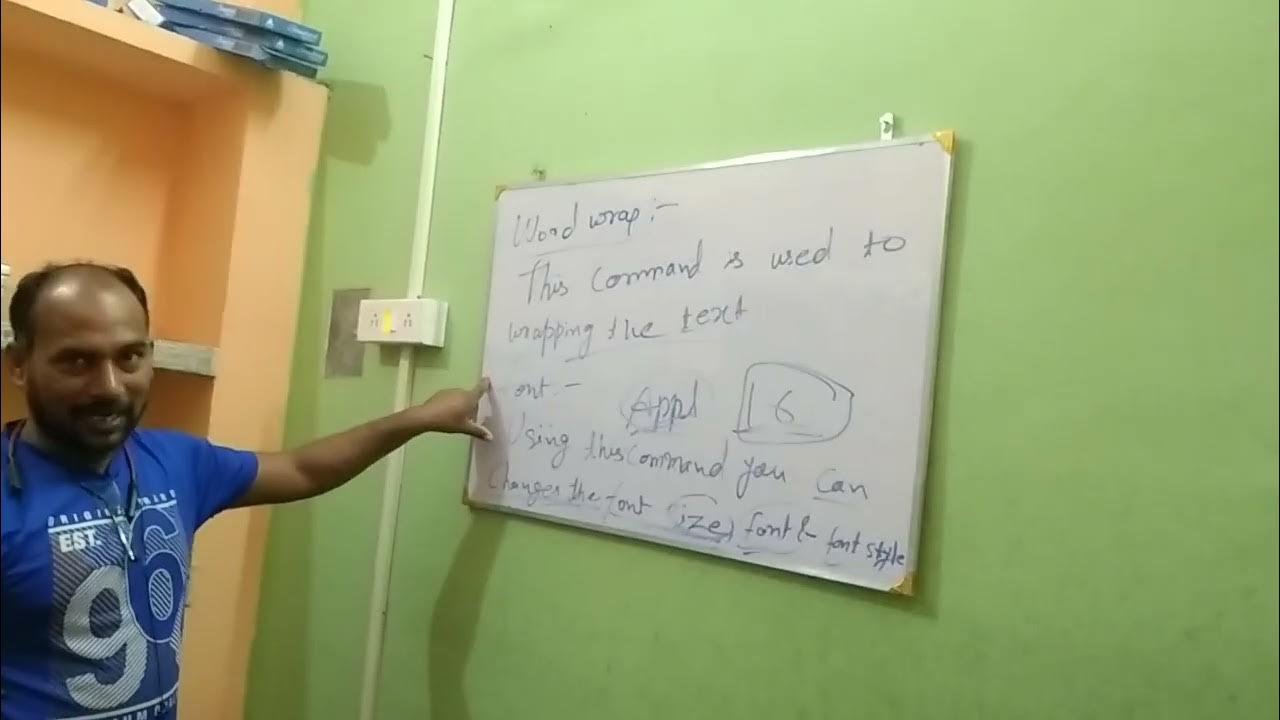 Word wrap :-
This Command is used to
wrapping the text
ont :-
Appl 16
Using this command you can
Changes the font size, font & font style
EST.
96